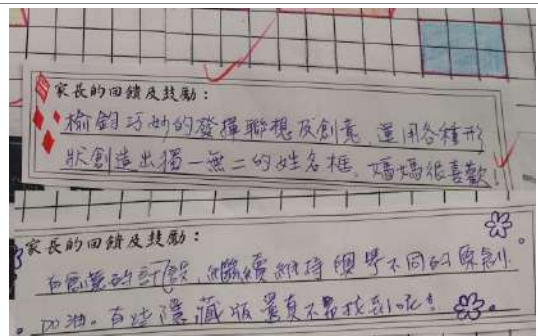 家長的回饋及鼓勵：
榆鈞巧妙的發揮聯想及創意，運用各種形
狀創造出獨一無二的姓名框，媽媽很喜歡！
家長的回饋及鼓勵：
有創意的設計，繼續維持與眾不同的原創
加油。有些隱藏版還真不易找到呢！